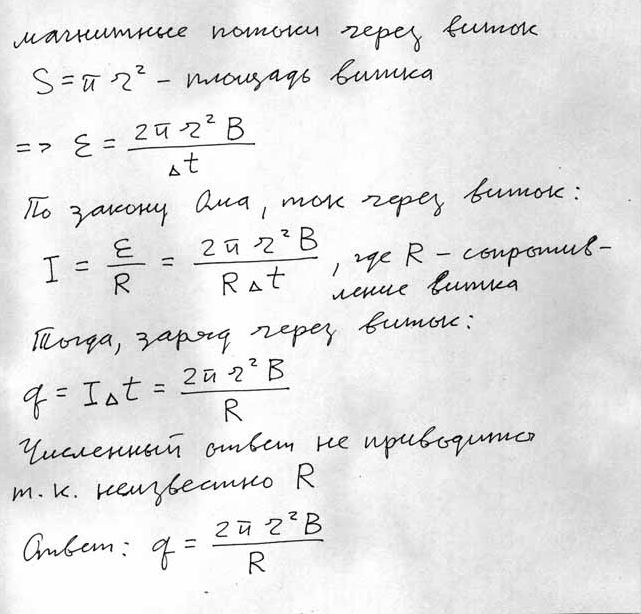 магнитные потоки через виток
S = π r² – площадь витка
=> ε = 2π r² B / Δt
По закону Ома, ток через виток:
I = ε / R = 2π r² B / R Δt , где R – сопротив-
ление витка
Тогда, заряд через виток:
q = I Δt = 2π r² B / R
Численный ответ не приводится
т.к. неизвестно R
Ответ: q = 2π r² B / R